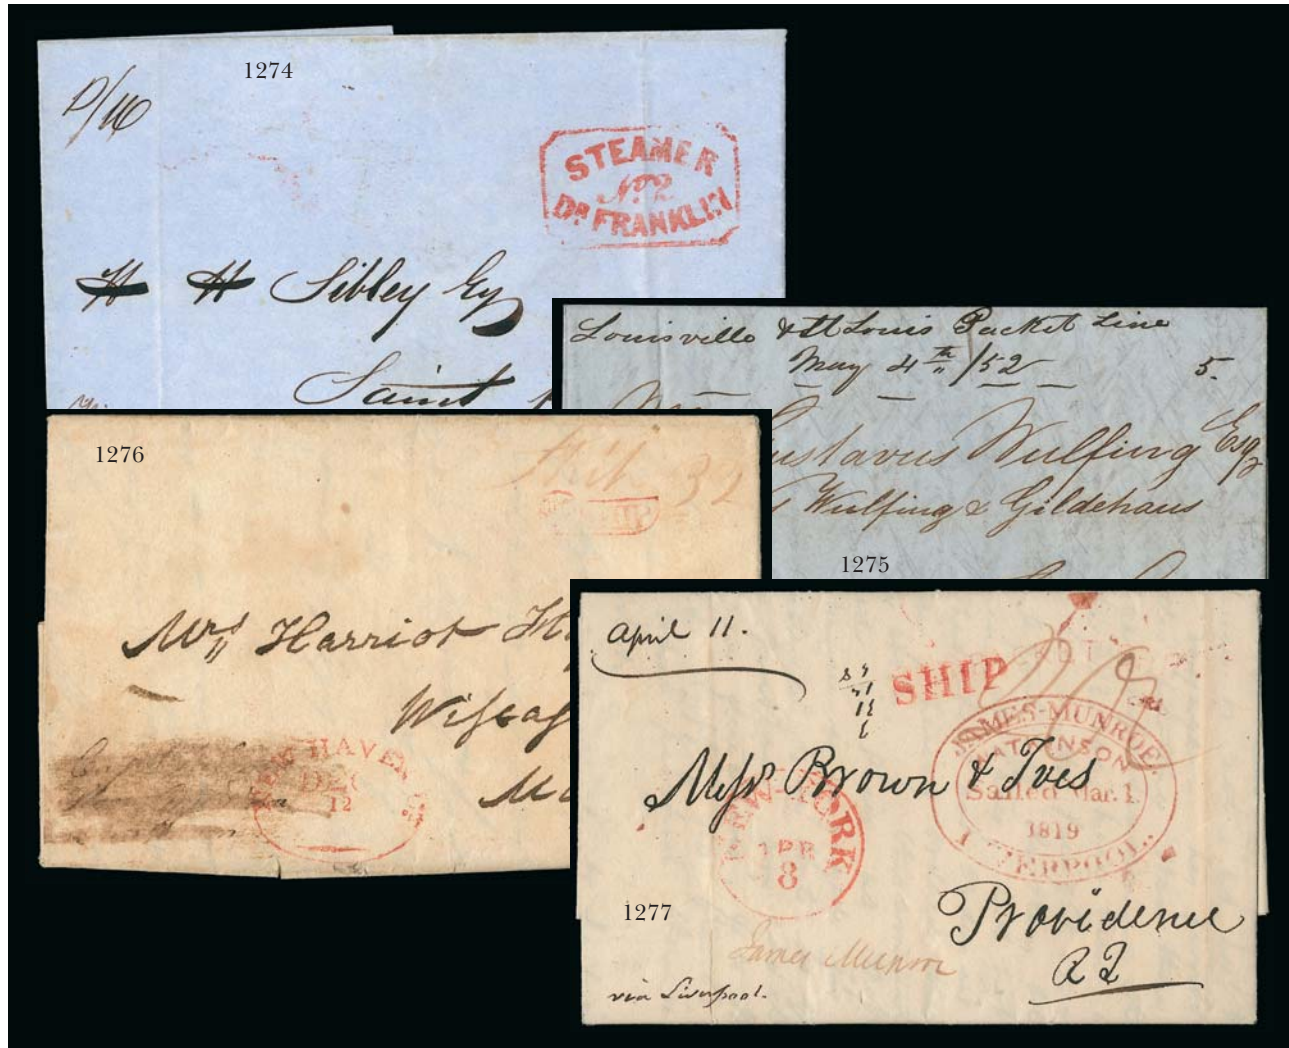 1274
P/M
STEAMER
No. 2
DR. FRANKLIN
H H Sibley Esq
Saint
Louisville & St Louis Packet Line
May 4th /52
5.
Gustavus Wulfing Esq
Wulfing & Gildehaus
1275
1276
Ship 32
SHIP
Mrs Harriot
Wiscas
NEW HAVEN Ct.
DEC
12
1277
April 11.
SHIP
JAMES-MUNROE.
WATKINSON
Sailed Mar. 1.
1819
LIVERPOOL.
Messrs Brown & Ives
NEW-YORK
APR
8
Providence
R I
James Munroe
via Liverpool.